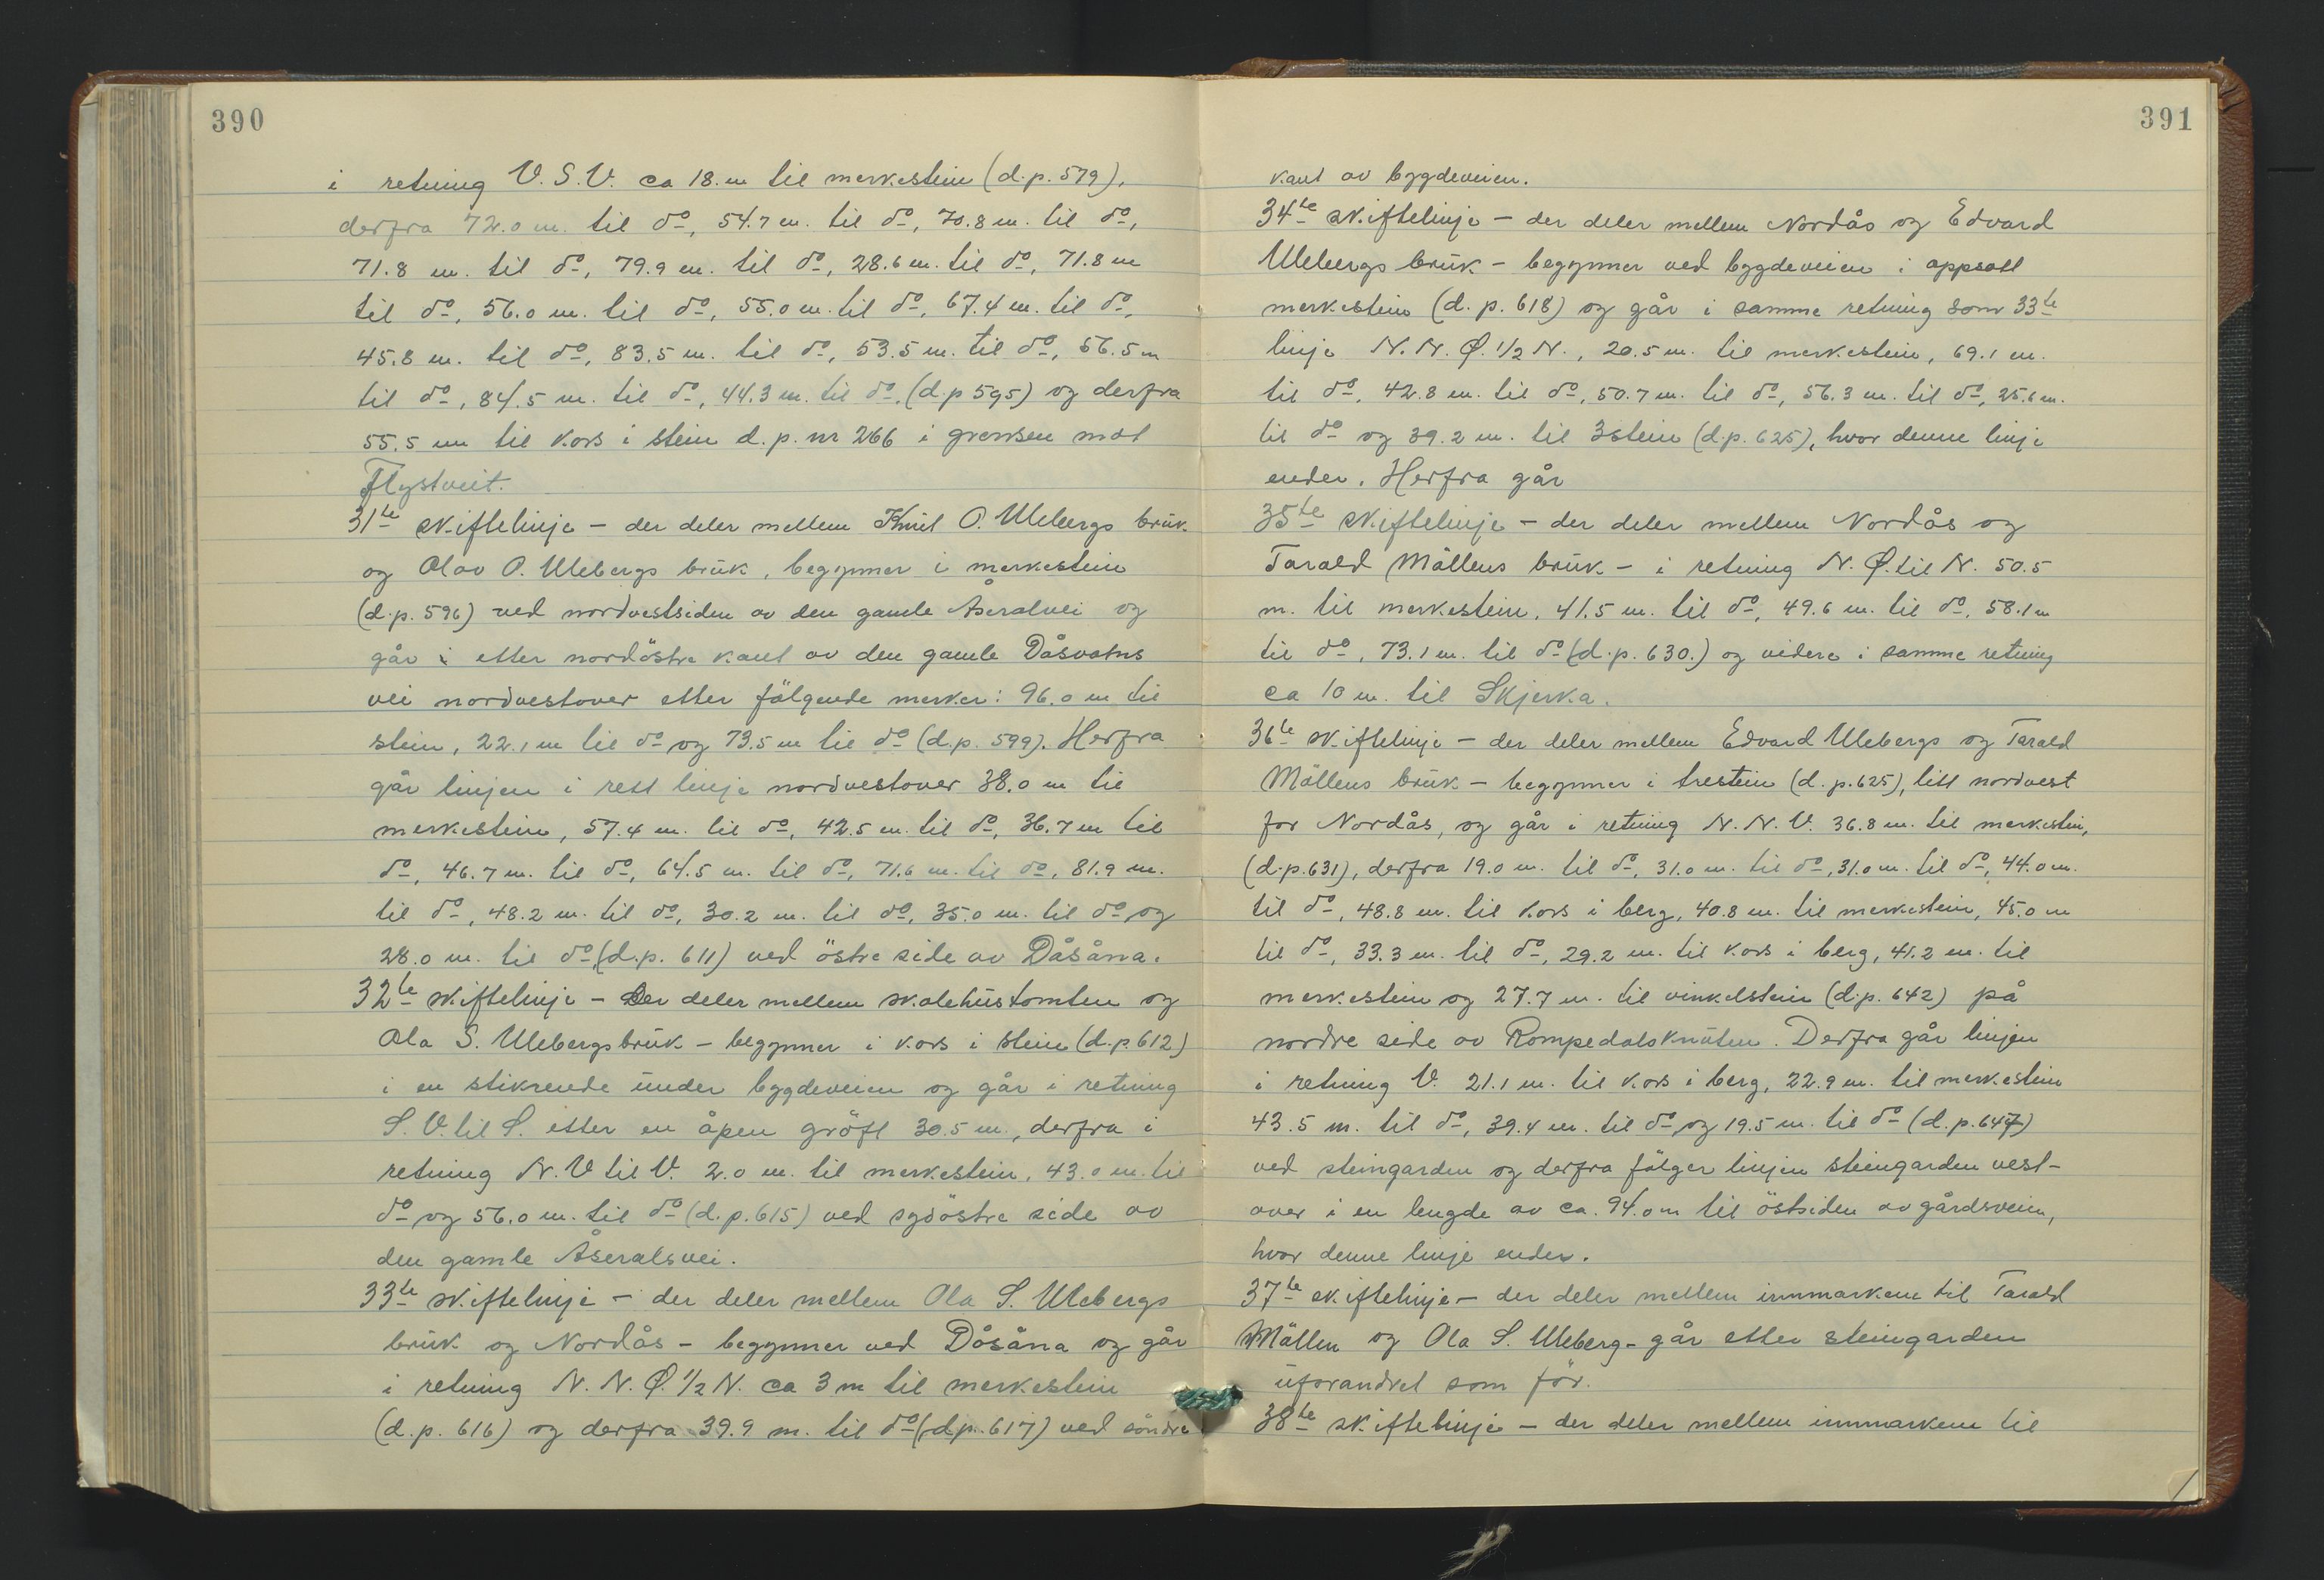 390
i retning V.S.V. ca 18.m til merkestein (d.p. 579),
derfra 72.0 m. til do, 54.7 m. til do, 70.8 m. til do,
71.8 m. til do, 79.9 m. til do, 28.6 m. til do, 71.8 m
til do, 56.0 m. til do, 55.0 m. til do, 67.4 m. til do,
45.8 m. til do, 83.5 m. til do, 53.5 m. til do, 56.5 m
til do, 84.5 m. til do, 44.3 m. til do. (d.p 595) og derfra
55.5 m til kors i stein d.p. nr 266 i grensen mot
Flystveit.
31te skiftelinje - der deler mellem Knut O. Ulebergs bruk
og Olav O. Ulebergs bruk, begynner i merkestein
(d.p. 596) ved nordvestsiden av den gamle Åseralvei og
går i etter nordöstre kant av den gamle Dåsvatns
vei nordvestover etter fölgende merker: 96.0 m til
stein, 22.1 m til do og 73.5 m til do (d.p. 599). Herfra
går linjen i rett linje nordvestover 38.0 m til
merkestein, 57.4 m. til do, 42.5 m. til do, 36.7 m til
do, 46.7 m. til do, 64.5 m. til do, 71.6 m. til do, 81.9 m.
til do, 48.2 m. til do, 30.2 m. til do, 35.0 m. til do og
28.0 m. til do (d.p. 611) ved östre side av Dåsåna.
32te skiftelinje - der deler mellem skolehustomten og
Ola S. Ulebergs bruk - begynner i kors i stein (d.p. 612)
i en stikrende under bygdeveien og går i retning
S.V. til S. etter en åpen gröft 30.5 m., derfra i
retning N.V til V. 2.0 m. til merkestein, 43.0 m. til
do og 56.0 m. til do (d.p. 615) ved sydöstre side av
den gamle Åseralsvei.
33te skiftelinje - der deler mellem Ola S. Ulebergs
bruk og Nordås - begynner ved Dåsåna og går
i retning N.N.Ø. 1/2 N. ca 3 m til merkestein
(d.p. 616) og derfra 39.9 m. til do (d.p. 617) ved söndre
391
kant av bygdeveien.
34te skiftelinje - der deler mellem Nordås og Edvard
Ulebergs bruk - begynner ved bygdeveien i oppsatt
merkestein (d.p. 618) og går i samme retning som 33te
linje N.N.Ø. 1/2 N., 20.5 m. til merkestein, 69.1 m.
til do, 42.8 m. til do, 50.7 m. til do, 56.3 m. til do, 25.6 m.
til do og 39.2 m. til 3stein (d.p. 625), hvor denne linje
ender. Herfra går
35te skiftelinje - der deler mellem Nordås og
Tarald Möllens bruk - i retning N.Ø. til N. 50.5
m. til merkestein, 41.5 m. til do, 49.6 m. til do, 58.1 m
til do, 73.1 m. til do (d.p. 630.) og videre i samme retning
ca 10 m. til Skjerka.
36te skiftelinje - der deler mellem Edvard Ulebergs og Tarald
Möllens bruk - begynner i trestein (d.p. 625), litt nordvest
for Nordås, og går i retning N.N.V. 36.8 m. til merkestein,
(d.p. 631), derfra 19.0 m. til do, 31.0 m. til do, 31.0 m. til do, 44.0 m.
til do, 48.8 m. til kors i berg, 40.8 m. til merkestein, 45.0 m
til do, 33.3 m. til do, 29.2 m. til kors i berg, 41.2 m. til
merkestein og 27.7 m. til vinkelstein (d.p. 642) på
nordre side av Rompedalsknuten. Derfra går linjen
i retning V. 21.1 m. til kors i berg, 22.9 m. til merkestein
43.5 m. til do, 39.4 m. til do og 19.5 m. til do (d.p. 647)
ved steingarden og derfra fölger linjen steingarden vest-
over i en lengde av ca. 94.0 m til östsiden av gårdsveien,
hvor denne linje ender.
37te skiftelinje - der deler mellem innmarkene til Tarald
Möllen og Ola S. Uleberg - går etter steingarden
uforandret som för.
38te skiftelinje - der deler mellem innmarkene til